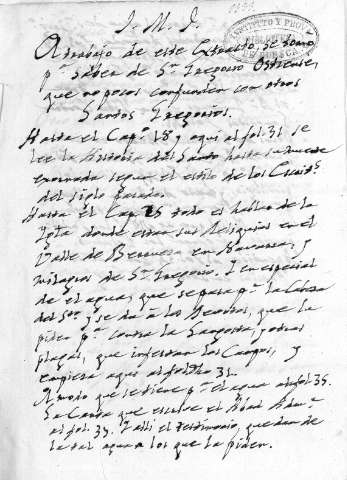 J. M. J.
El trabajo de este Extracto, se tomó
pª. saber de Sn. Gregorio Ostiense,
que no pocos confunden con otros
Santos Gregorios.
Hasta el Cap. 18 y aqui al fol. 31 se
lee la Historia del Santo hasta su muerte
exornada segun el estilo de los Escrits.
del siglo pasado.
Hasta el Cap. 25 todo es hablar de la
Igla. donde estan sus Reliquias en el
Valle de Berrueza en Navarra, y
milagros de Sn. Gregorio. I en especial
de el agua, que se pasa pr. la Cabeza
del Sto. y se da à los Devotos, que la
piden pª. contra la Langosta, y otras
plagas, que infestan los Campos, y
empieza aqui al folio 31.
El modo que se tiene pª. el agua al fol. 35.
La Carta que escribe el Abad
al fol. 37. I alli el testimonio, que dan de
la tal agua a los que la piden.
INSTITUTO Y PROV
BIBLIOTECA